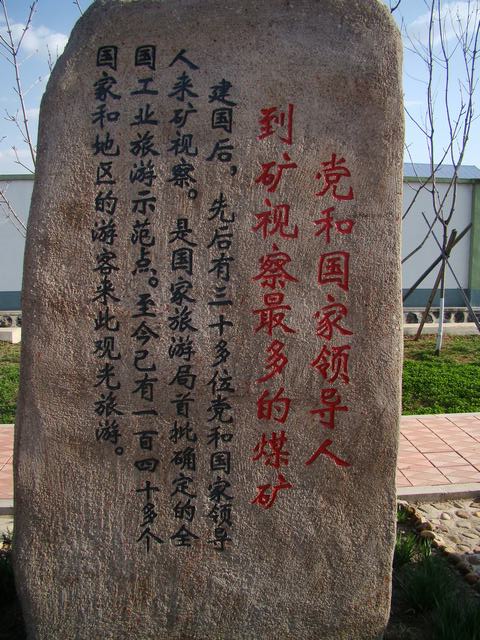 党和国家领导人
到矿视察最多的煤矿
建国后，先后有三十多位党和国家领导
人来矿视察。是国家旅游局首批确定的全
国工业旅游示范点。至今已有一百四十多个
国家和地区的游客来此观光旅游。